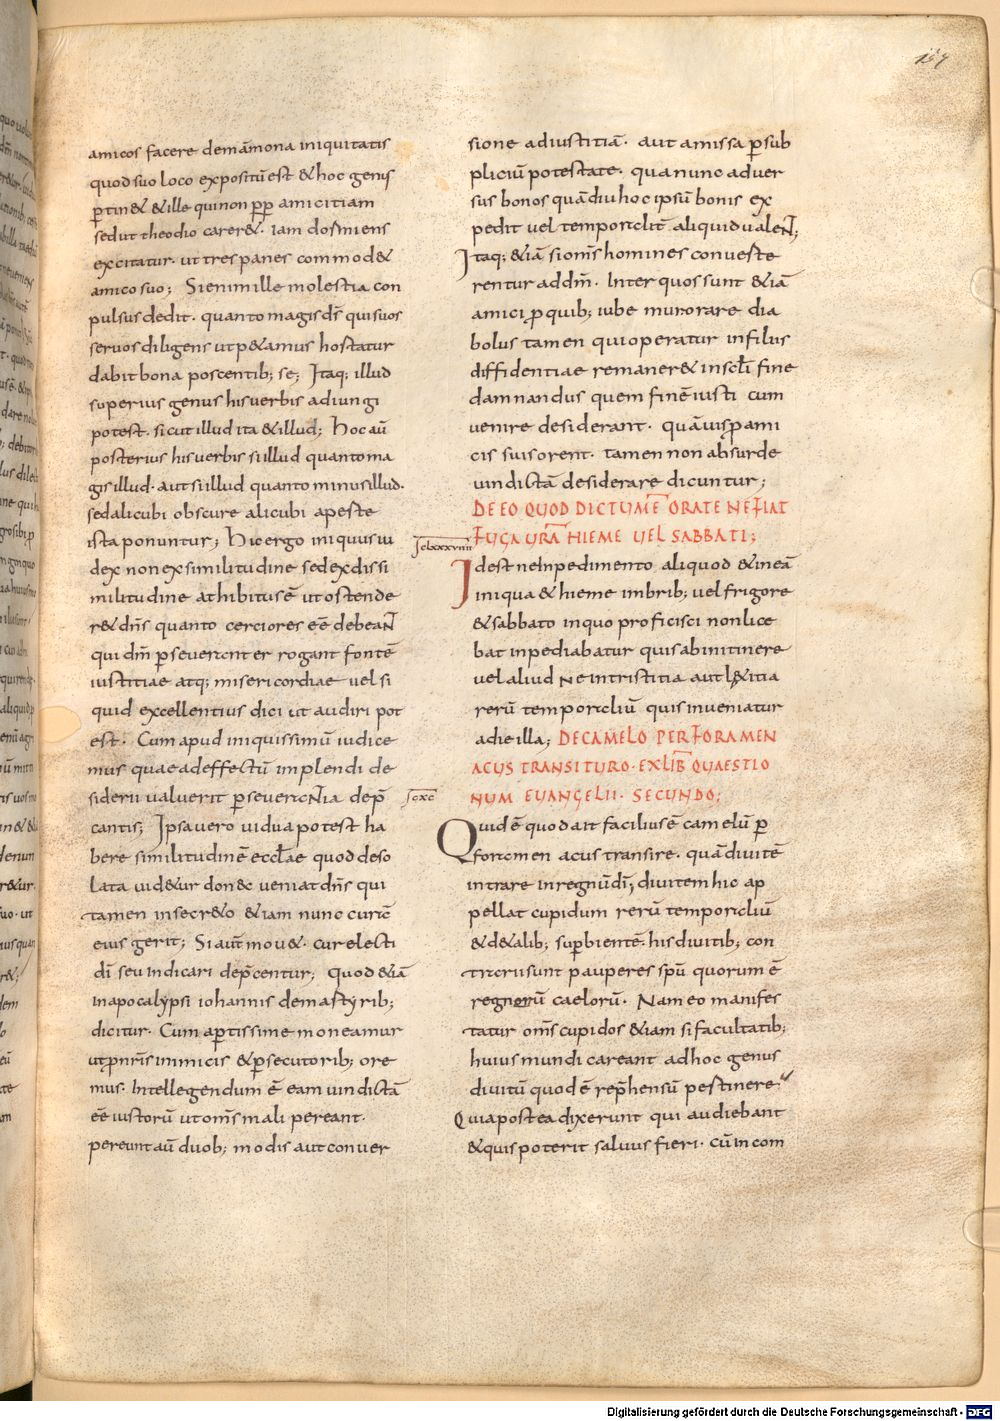 amicos facere demāmona iniquitatis
quod suo loco expositū est & hoc genis
ꝑtin& & ille qui non ꝓp amicitiam
sed ut thedio carer&. iam dormiens
excitatur. ut tres panes commod&
amico suo; Si enim ille molestia con
pulsus dedit. quanto magis d̄s qui suos
servos diligens ut p&amus hortatur
dabit bona poscentib; se; Itaq; illud
superius genus his verbis adiungi
potest. sicut illud ita & illud; Hoc aū
posterius his verbis si illud quanto ma
gis illud. aut si illud quanto minus illud.
sed alicubi obscure alicubi aperte
ista ponuntur; Hic ergo iniquus iu
dex non ex similitudine sed ex dissi
militudine athibitus ē ut ostende
r& dn̄s quanto cerciores eē debeaNt
qui dm̄ ꝑseveranter rogant fontē
iustitiae atq; misericordiae vel si
quid excellentius dici ut audiri pot
est. Cum apud iniquissimū iudice
mus quae ad effectū implendi de
siderii valuerit ꝑseverantia dep̄
cantis; Ipsa vero vidua potest ha
bere similitudinē eccl̄ae quod deso
lata vid&ur donec veniat dn̄s qui
tamen in secr&o &iam nunc curā
eius gerit; Si aut̄ mov&. cur electi
dī se vindicari dep̄centur; quod &iā
in apocalypsi iohannis de martyrib;
dicitur. Cum aꝑtissime moneamur
ut ꝓ nr̄is inimicis & ꝑsecutorib; ore
mus. Intellegendum ē eam vindictā
eē iustorū ut om̄s mali pereant.
pereunt aū duob; modis aut conver
sione ad iustitiā. aut amissa ꝑ sub
pliciū potestate. qua nunc adver
sus bonos quādiu hoc ipsū bonis ex
pedit vel temporalit̄ aliquid valeNt;
Itaq; &iā si om̄s homines converte
rentur ad dm̄. Inter quos sunt &iā
amici ꝓ quib; iube murorare dia
bolus tamen qui operatur in filus
diffidentiae remaner& in sclī fine
damnandus quem finē iusti cum
venire desiderant. quāvis ꝓ ami
cis suis orent. tamen non absurde
vindictā desiderare dicuntur;
DE EO QUOD DICTUM Ē ORATE NE FIAT
FUGA UR̄A HIEME UEL SABBATI;
sclxxxviiii
Id est ne inpedimento aliquod & in eā
iniqua & hieme imbrib; vel frigore
& sabbato in quo proficisci non lice
bat inpediabatur quis ab initinere
vel aliud ne in tristitia aut l&itia
rerū temporaliū quis inveniatur
a die illa; DE CAMELO PER FORAMEN
ACUS TRANSITURO. EX LIB̄ QUAESTIO
NUM EUANGELII. SECUNDO;
scxc
Quid ē quod ait facilius ē camelū ꝑ
foramen acus transire. quā divitē
intrare in regnū dī; divitem hic ap
pellat cupidum rerū temporaliū
& d& alib; suꝑbientē. his divitib; con
trarii sunt pauperes spū quorum ē
regnorū caelorū. Nam eo manifes
tatur om̄s cupidos &iam si facultatib;
huius mundi careant ad hoc genus
divitū quod ē rep̄hensū pertinere.
Quia postea dixerunt qui audiebant
& quis poterit salvus fieri. cū in com
Digitalisierung gefördert durch die Deutsche Forschungsgemeinschaft - DFG